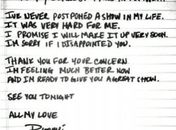 I'VE NEVER POSTPONED A SHOW IN MY LIFE.
IT WAS VERY HARD FOR ME.
I PROMISE I WILL MAKE IT UP VERY SOON.
I'M SORRY IF I DISAPPOINTED YOU.
THANK YOU FOR YOUR CONCERN
I'M FEELING MUCH BETTER NOW
AND I'M READY TO GIVE YOU A GREAT SHOW.
SEE YOU TONIGHT
ALL MY LOVE